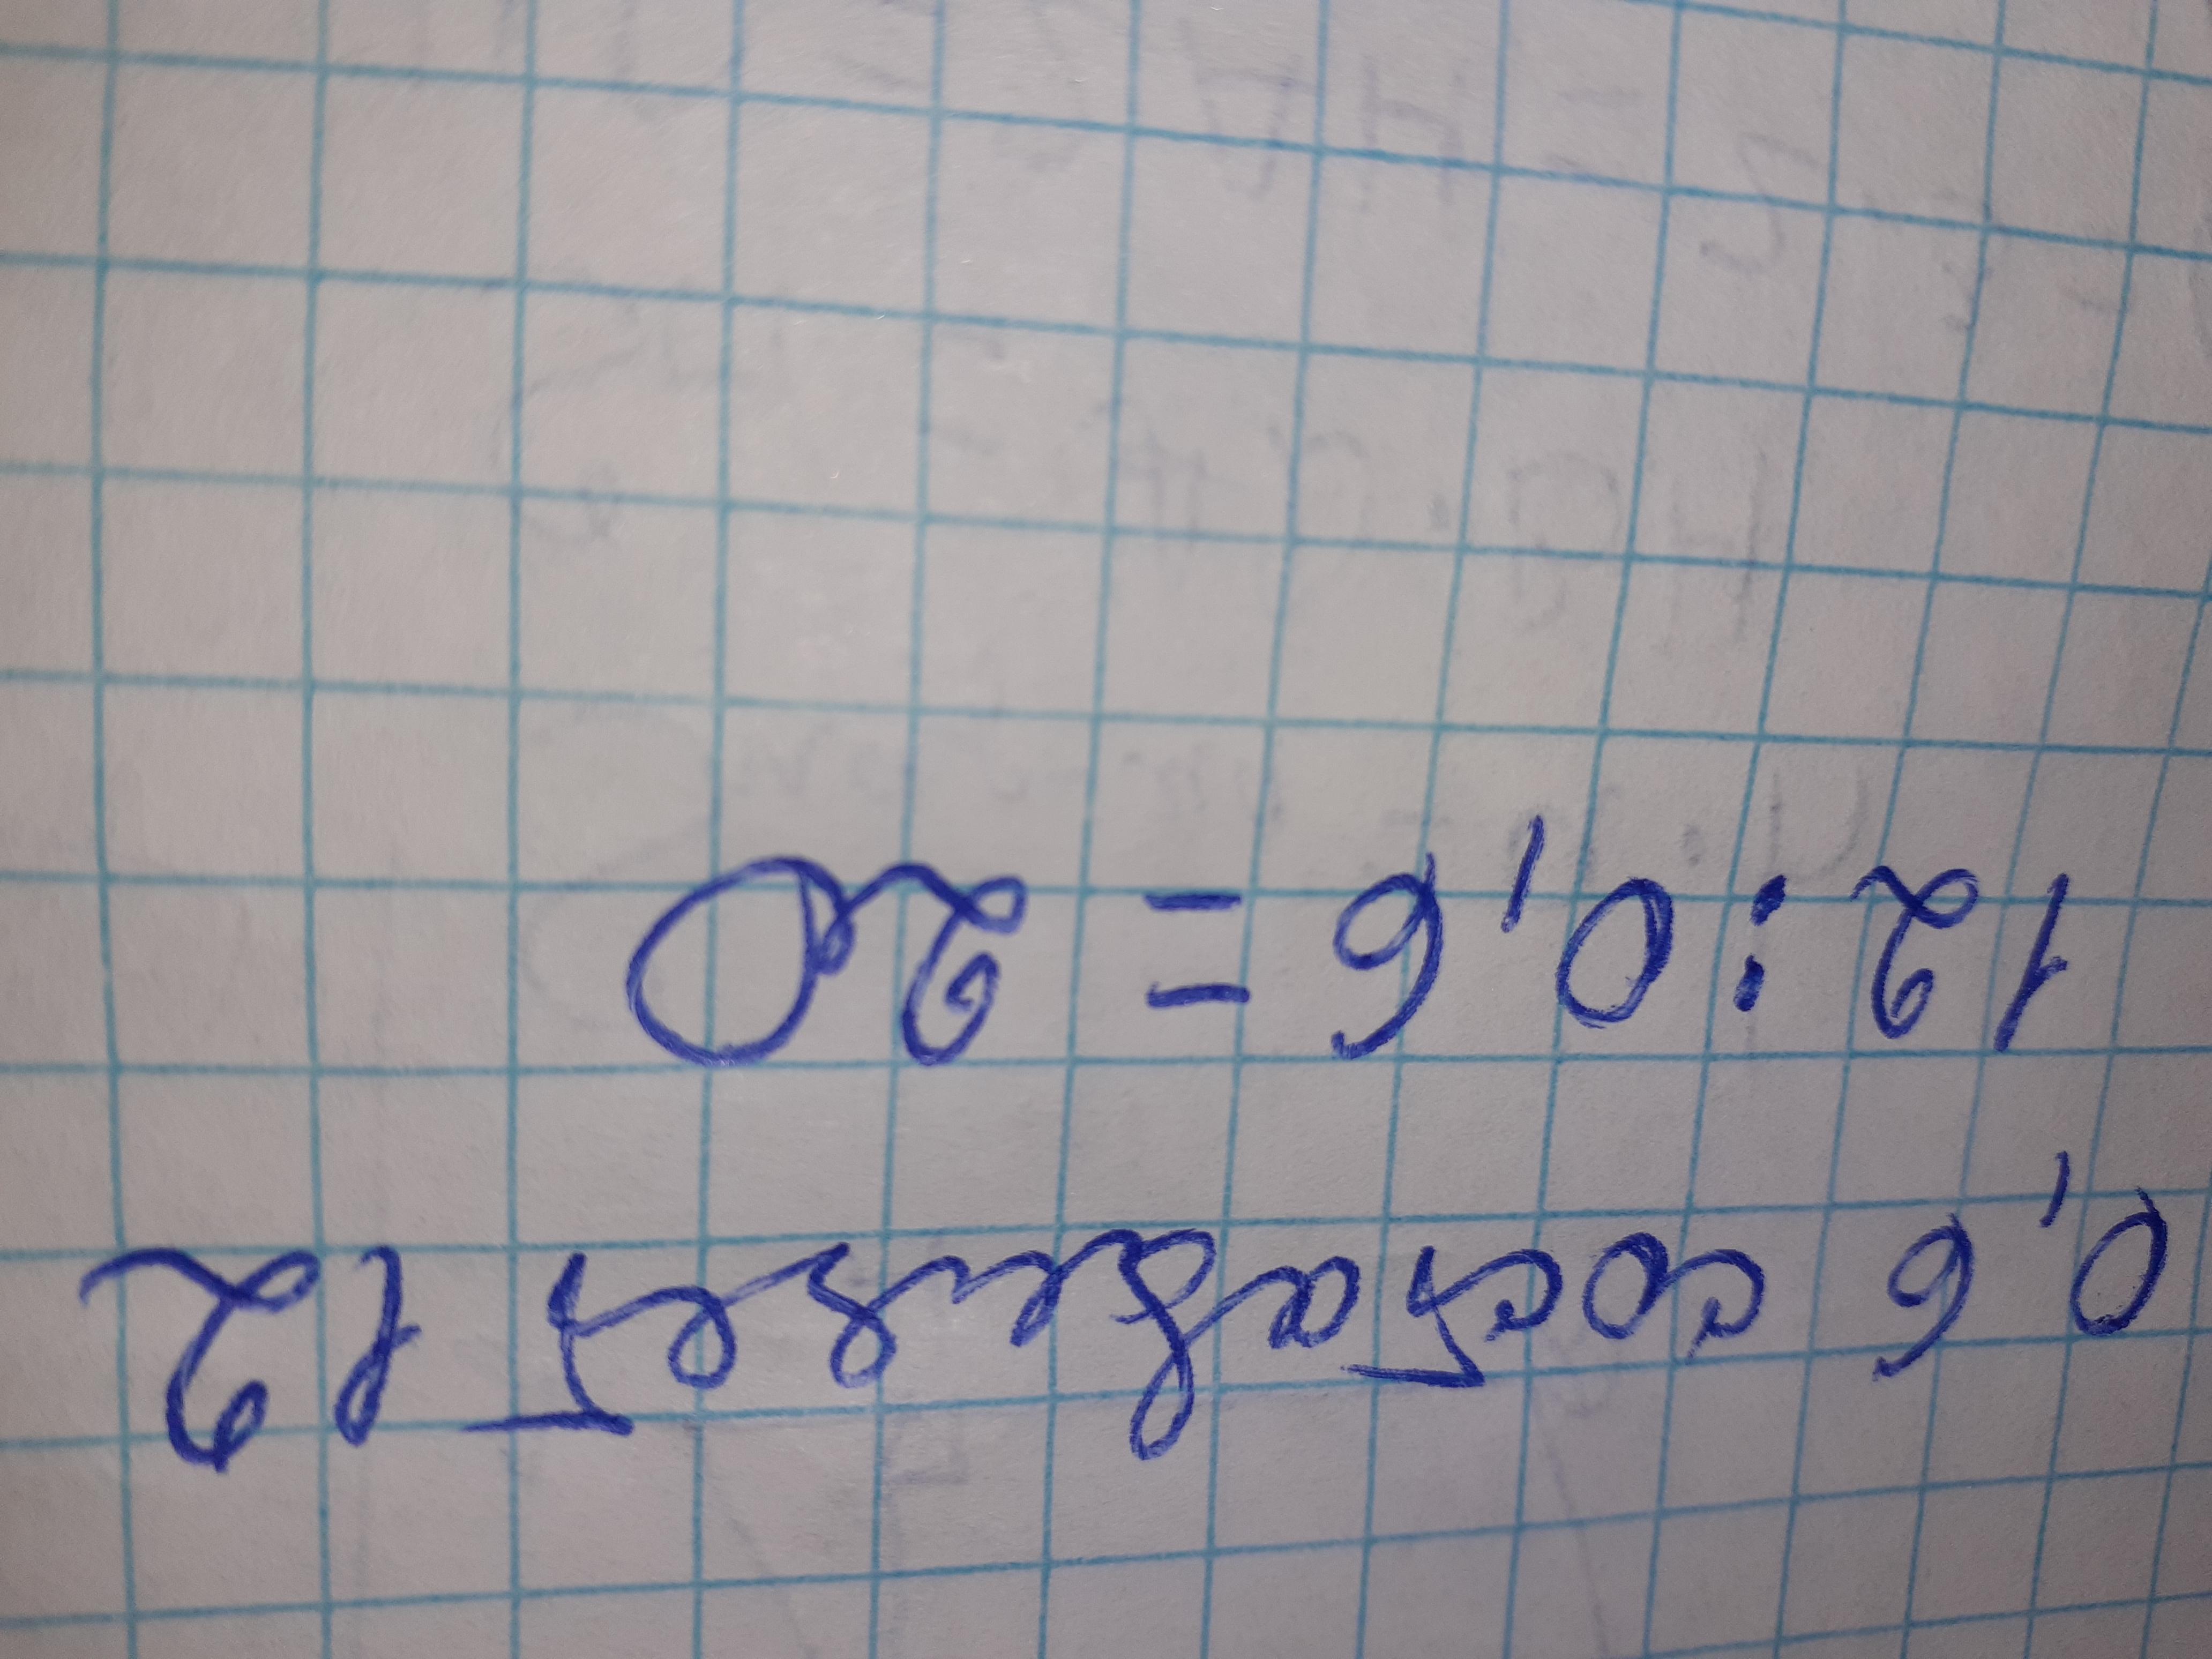 0,6 составляет 12
12 : 0,6 = 20